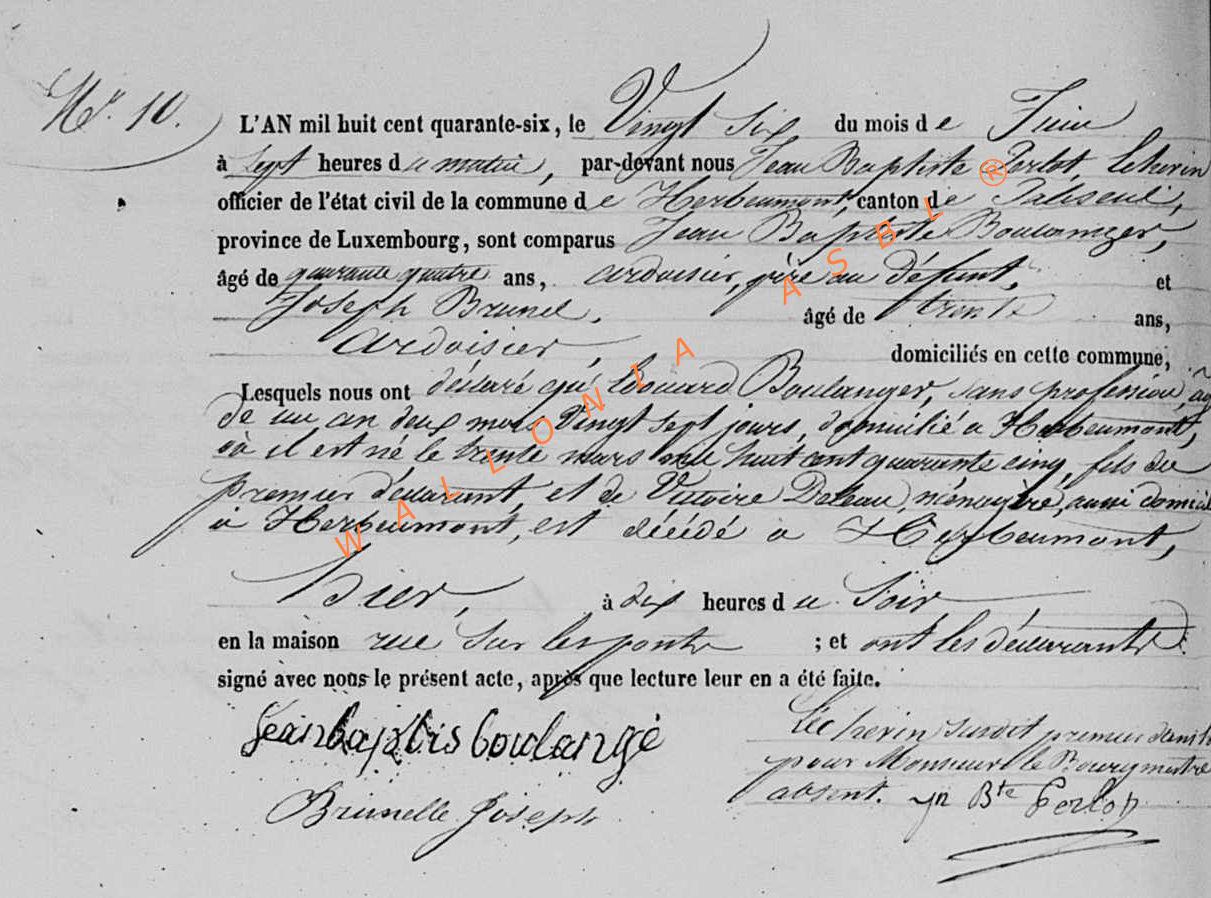 N.° 10.
L'AN mil huit cent quarante-six, le Vingt Six du mois de Juin
à sept heures du matin, par-devant nous Jean Baptiste Perlot, Echevin
officier de l'état civil de la commune de Herbeumont, canton de Paliseul,
province de Luxembourg, sont comparus Jean Baptiste Boulanger,
âgé de quarante quatre ans, ardoisier, père au défunt, et
Joseph Brunel, âgé de trente ans,
ardoisier, domiciliés en cette commune,
Lesquels nous ont déclaré qu'Edouard Boulanger, sans profession, âgé
de un an deux mois Vingt sept jours, domicilié à Herbeumont,
où il est né le trente mars mil huit cent quarante cinq, fils du
premier déclarant, et de Victoire ménagère, aussi domicil
à Herbeumont, est décédé à Herbeumont,
hier, à dix heures du Soir
en la maison rue Sur les ponts ; et ont les déclarants
signé avec nous le présent acte, après que lecture leur en a été faite.
Jean baptis boulangé
Brunelle Joseph
L'Echevin susdit premier dans
pour Monsieur le Bourgmestre
absent. Jn Bte Perlot
WALLONIA ASBL ®